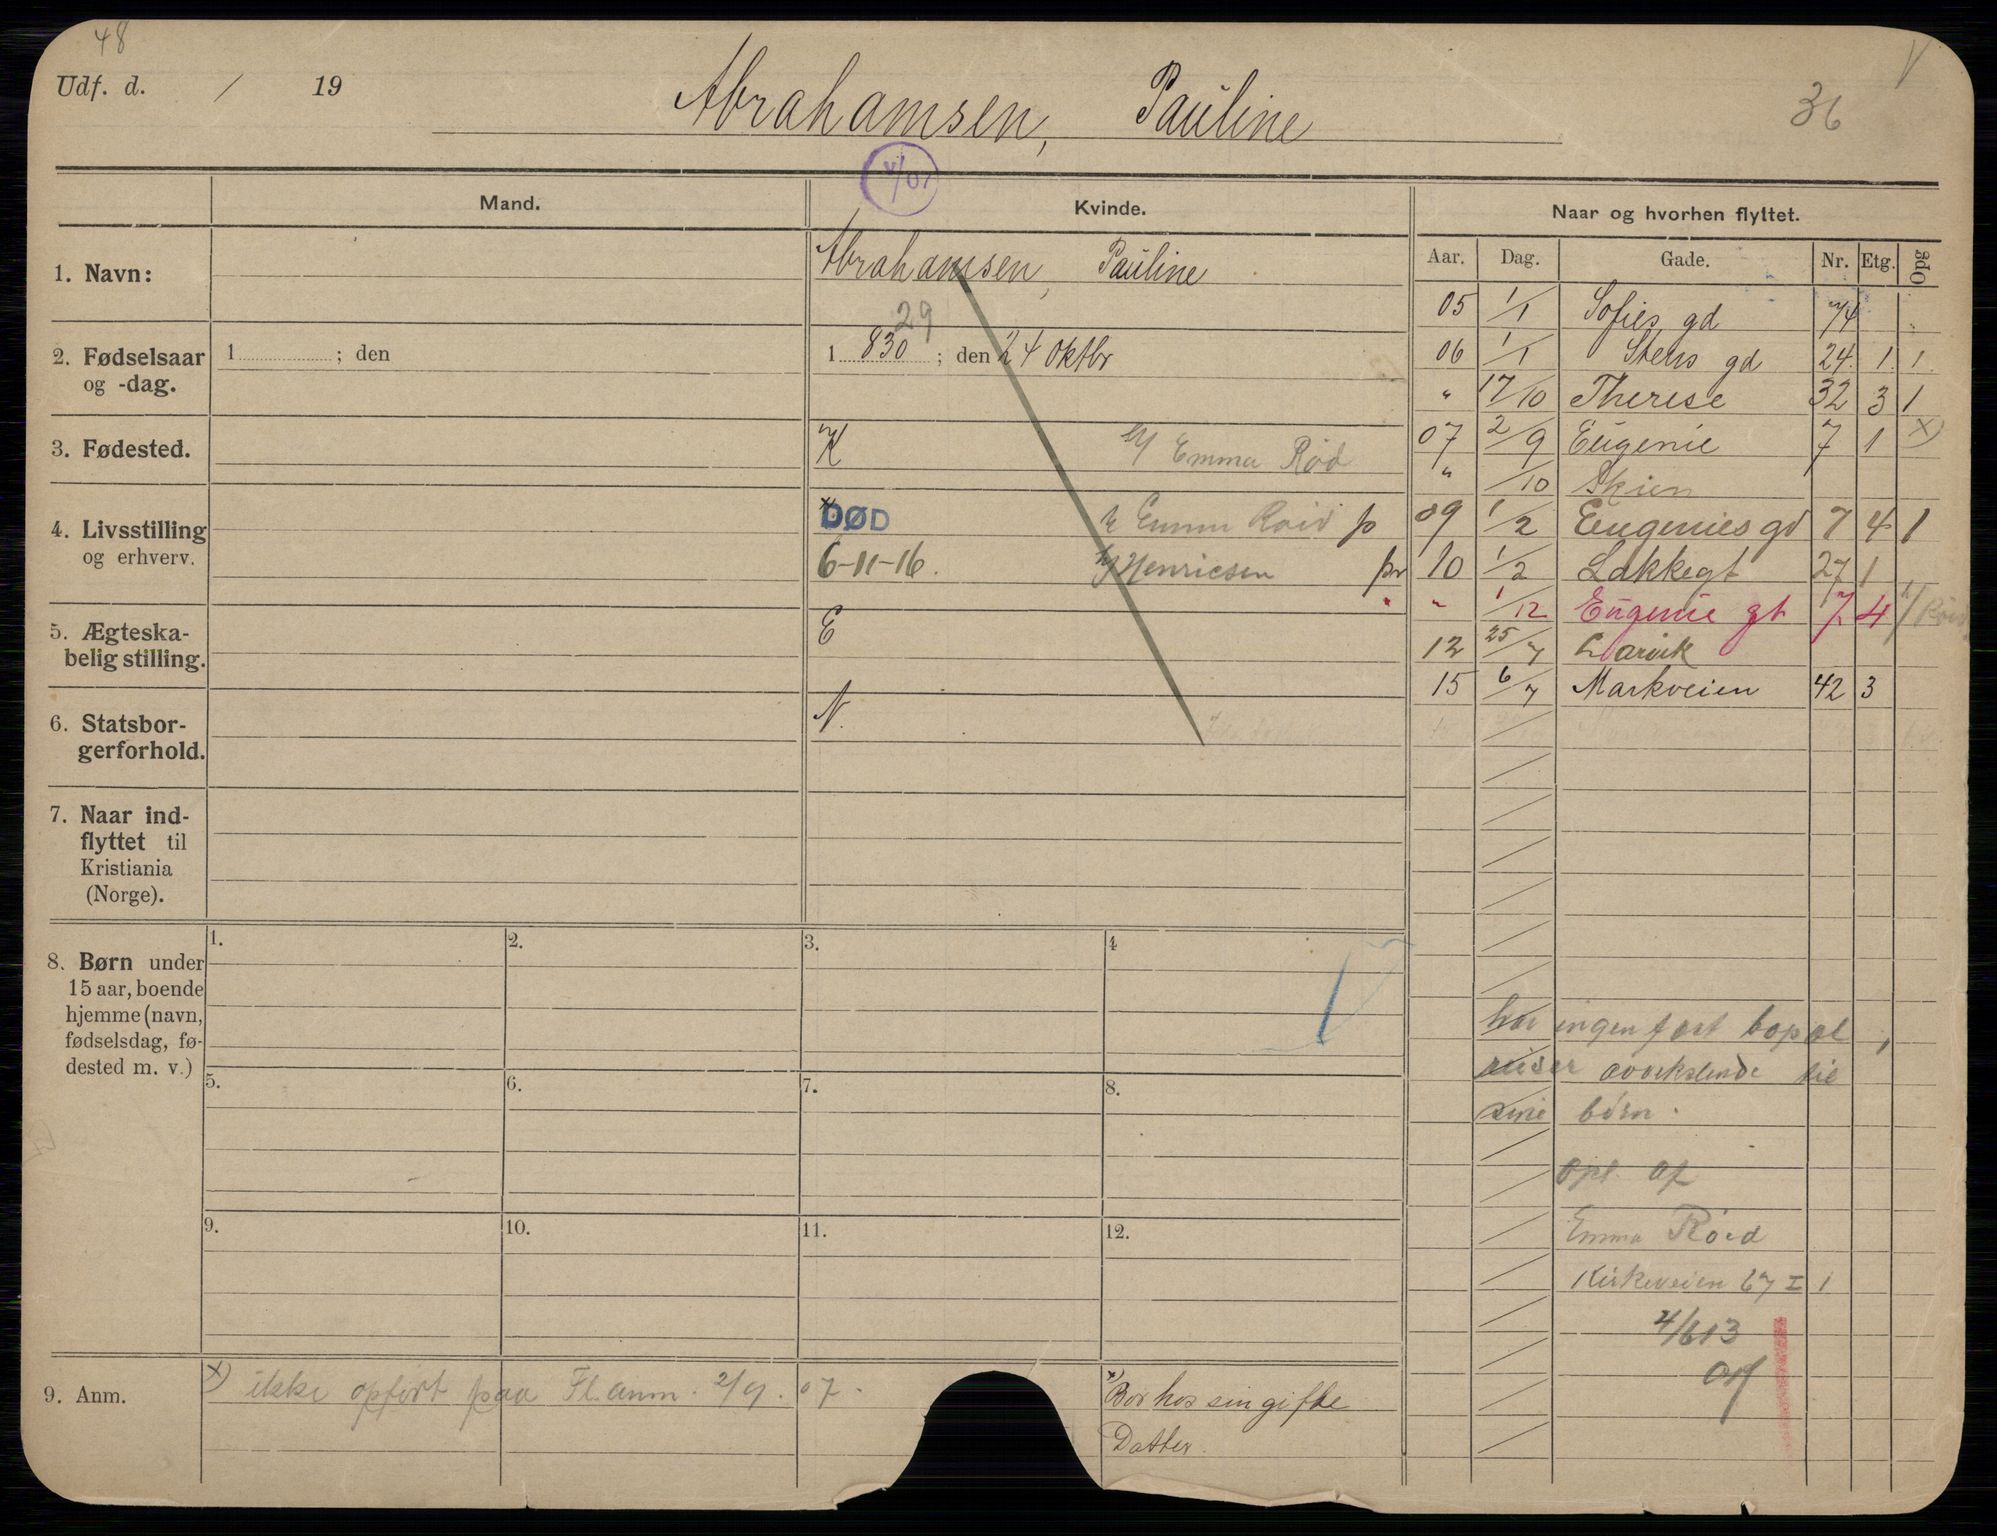 48
Udf. d. / 19
Abrahamsen, Pauline
36
V
V/07
Mand.
Kvinde.
Naar og hvorhen flyttet.
Aar. Dag. Gade. Nr. Etg. Opg
1. Navn:
Abrahamsen, Pauline
2. Fødselsaar
og -dag.
1 ; den
29
1 830 ; den 24 Oktbr
3. Fødested.
K
h/ Emma Rød
4. Livsstilling
og erhverv.
x
DØD
Emma Roid p
6-11-16.
h/ Henricsen pr
"
5. Ægteska-
belig stilling.
E
6. Statsbor-
gerforhold.
N.
7. Naar ind-
flyttet til
Kristiania
(Norge).
05 1/1 Sofies gd 74
06 1/1 Stens gd 24. 1. 1.
" 17/10 Therese 32 3 1
07 2/9 Eugenie 7 1 x)
" /10 Skien
09 1/2 Eugenies gd 7 4 1
10 1/2 Lakkegt 27 1
" 1/12 Eugenie gt 7 4 h/ Roid
12 25/7 Larvik
15 6/7 Markveien 42 3
8. Børn under
15 aar, boende
hjemme (navn,
fødselsdag, fø-
dested m. v.)
1. 2. 3. 4
5. 6. 7. 8.
9. 10. 11. 12.
har ingen fast bopæl,
reiser avvekslende til
sine børn.
opl. af
Emma Röed
Kirkeveien 67 I 1
4/6 13
9. Anm.
x) ikke opført paa Fl. anm. 2/9. 07.
x) Bor hos sin gifte
Datter.